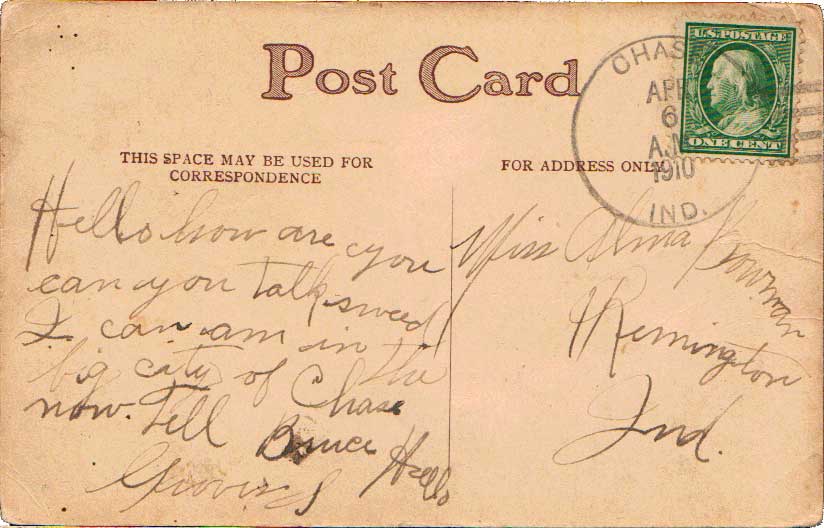 Post Card
U.S. POSTAGE
ONE CENT
CHAS
APR
6
A.M
1910
IND.
THIS SPACE MAY BE USED FOR
CORRESPONDENCE
FOR ADDRESS ONLY
Hello how are you
can you talk sweed
I can am in the
big city of Chase
now. Tell Bruce Hello
Miss Alma Bowman
Remington
Ind.